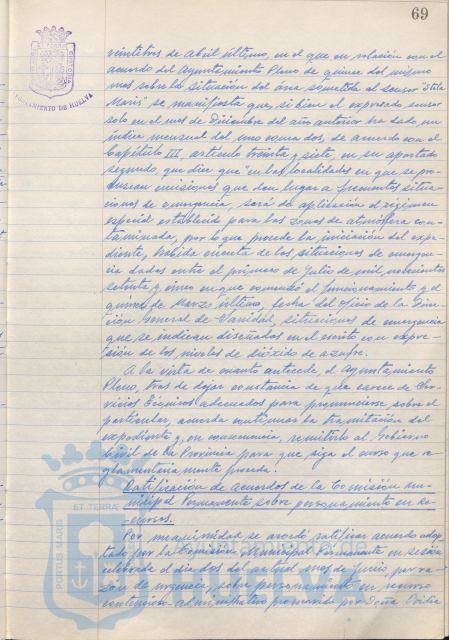 69
AYUNTAMIENTO DE HUELVA
veintitres de abril último, en el que en relación con el
acuerdo del Ayuntamiento Pleno de quince del mismo
mes sobre la situación del area sometida al sensor "Stela
Maris" se manifiesta que si bien el expresado sensor
solo en el mes de Diciembre del año anterior ha dado un
índice mensual del uno coma dos, de acuerdo con el
Capítulo III, artículo treinta y siete, en su apartado
segundo, que dice que "en las localidades en que se pro-
duzcan emisiones que den lugar a frecuentes situa-
ciones de emergencia, será de aplicación el régimen
especial establecido para las zonas de atmósfera con-
taminada, por lo que procede la iniciación del expe-
diente, habida cuenta de las situaciones de emergen-
cia dadas entre el primero de Julio de mil novecientos
setenta y cinco en que comenzó el funcionamiento y el
quince de Marzo último, fecha del oficio de la Direc-
ción General de Sanidad, situaciones de emergencia
que se indican diseñadas en el escrito con expre-
sión de los niveles de dióxido de azufre.
A la vista de cuanto antecede el Ayuntamiento
Pleno, tras de dejar constancia de que carece de Ser-
vicios Técnicos adecuados para pronunciarse sobre el
particular, acuerda continuar la tramitación del
expediente y, en consecuencia, remitirlo al Gobierno
Civil de la Provincia para que siga el curso que re-
glamentariamente proceda.
Ratificación de acuerdos de la Comisión Mu-
nicipal Permanente sobre personamiento en re-
cursos.
Por unanimidad se acordó ratificar acuerdo adop-
tado por la Comisión Municipal Permanente en sesión
celebrada el dia dos del actual mes de junio, por ra-
zón de urgencia, sobre personamiento en recurso
contencioso-administrativo promovido por Doña
PORTUS MARIS
ET TERRAE